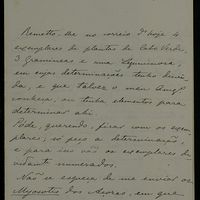 Remetto-lhe no correio d'hoje 4
exemplares de plantas de Cabo Verde,
3 Gramineas e uma Leguminosa,
em cujas determinações tenho duvi-
da, e que talvez o meu Amigo
conheça, ou tenha elementos para
determinar ahi.
Póde, querendo, ficar com os exem-
plares; só peço a determinação,
e para isso vão os exemplares de-
vidamente numerados.
Não se esqueça de me enviar os
Myosotis dos Açores, em que